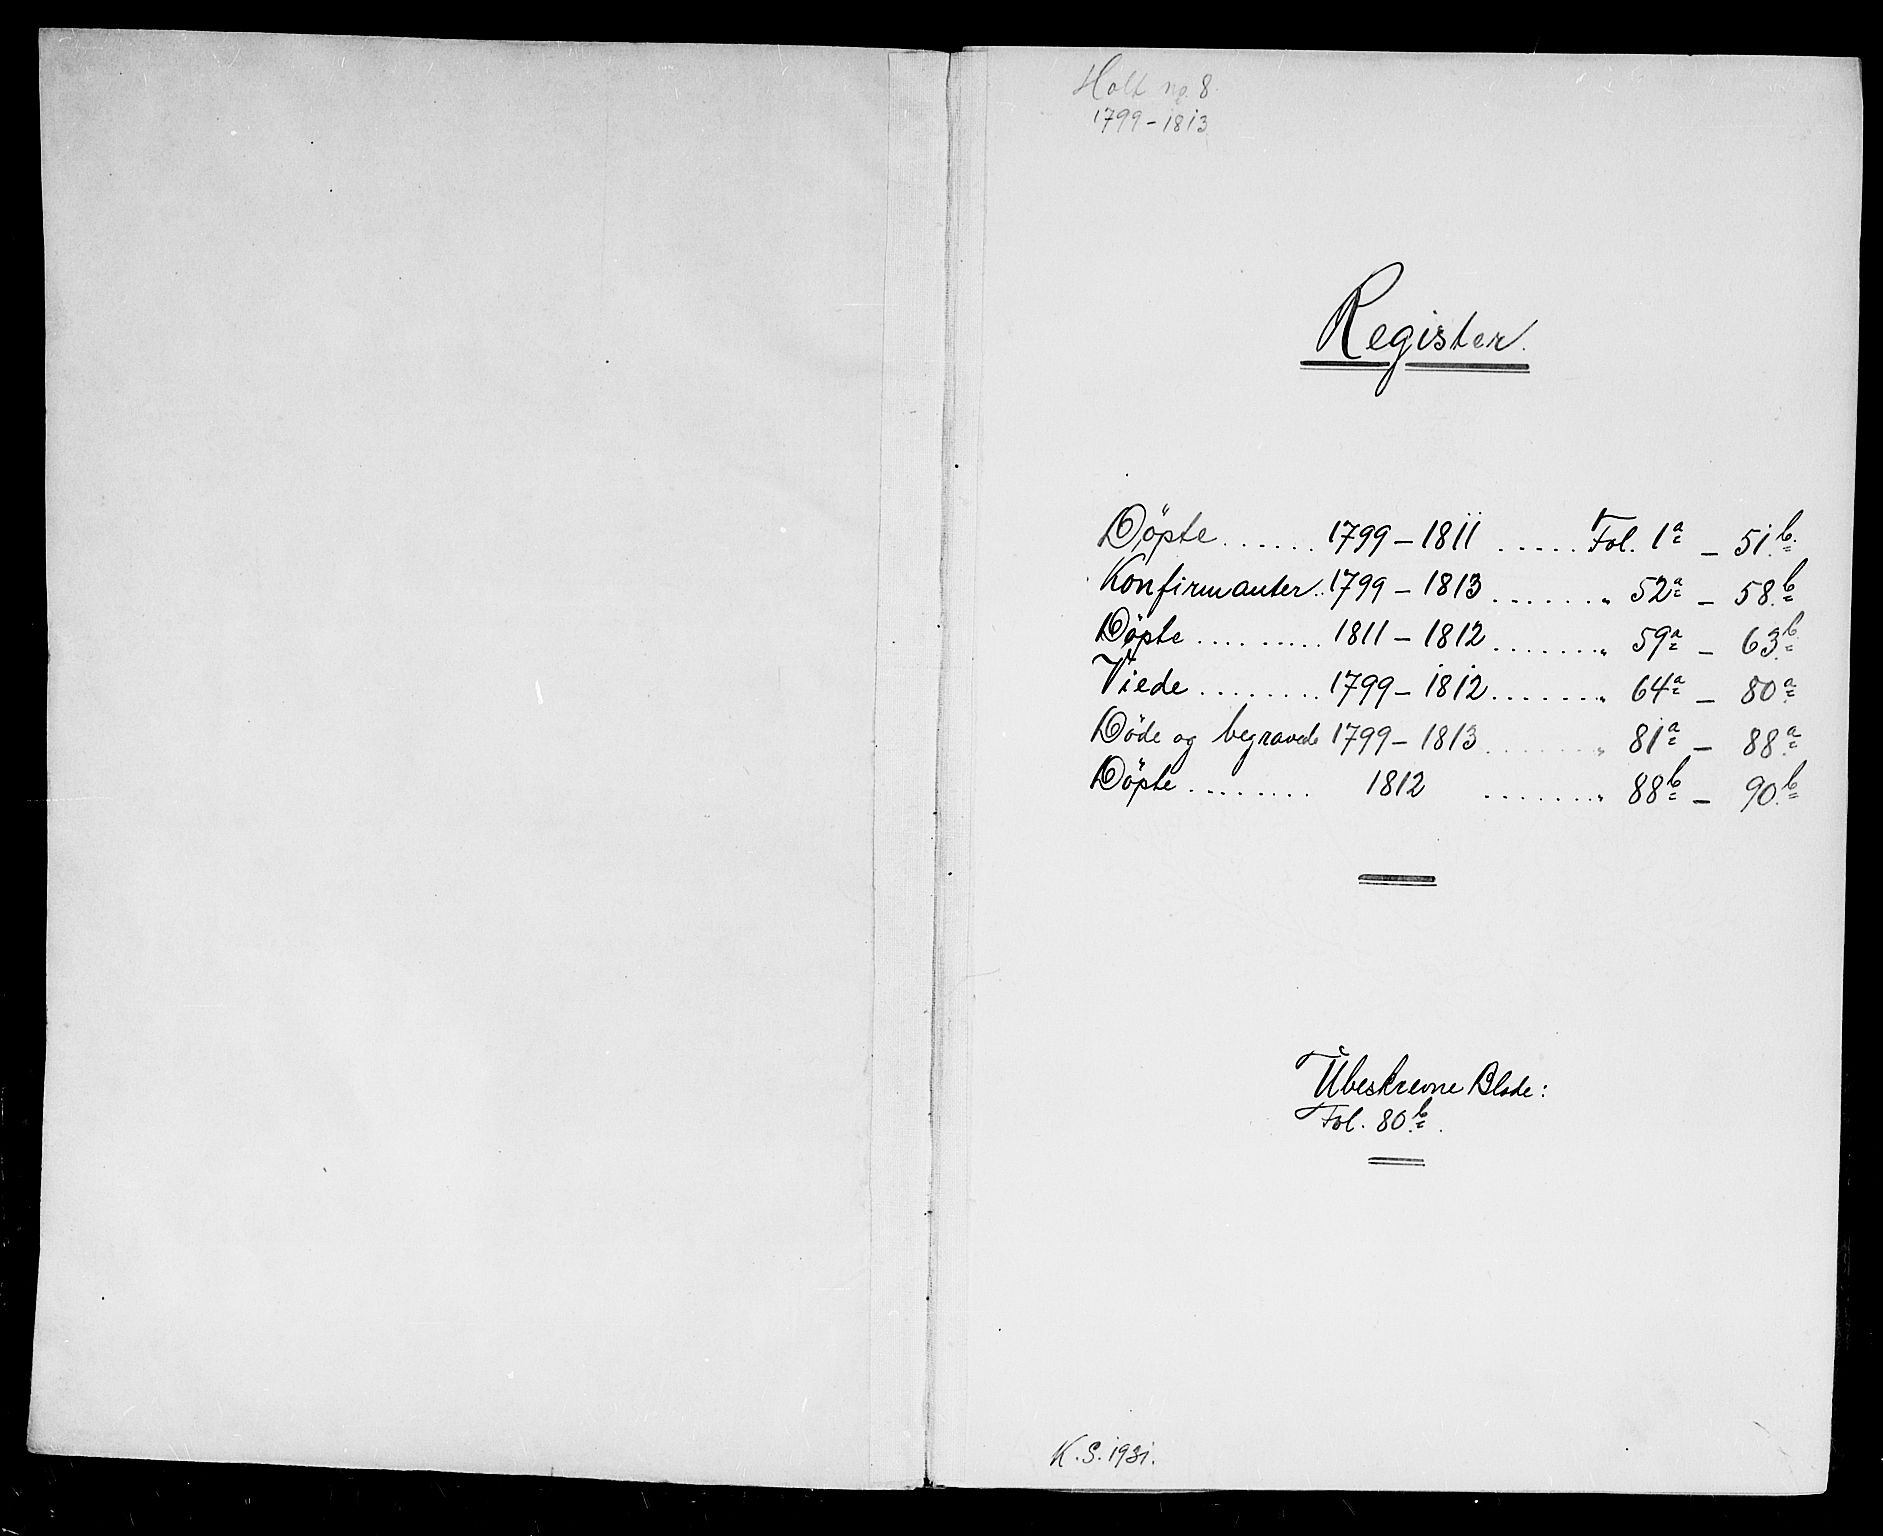 Holt no. 8.
1799-1813
Register.
Döpte ...... 1799 - 1811 ..... Fol. 1a - 51b.
Konfirmanter .. 1799 - 1813 ....... " 52a - 58b
Döpte ......... 1811 - 1812 ....... " 59a - 63b
Viede ........ 1799 - 1812 ....... " 64a - 80a
Döde og begravede 1799 - 1813 ....... " 81a - 88a
Döpte ........ 1812 ....... " 88b - 90b
Ubeskrevne Blade:
Fol. 80b.
K. S. 1931.